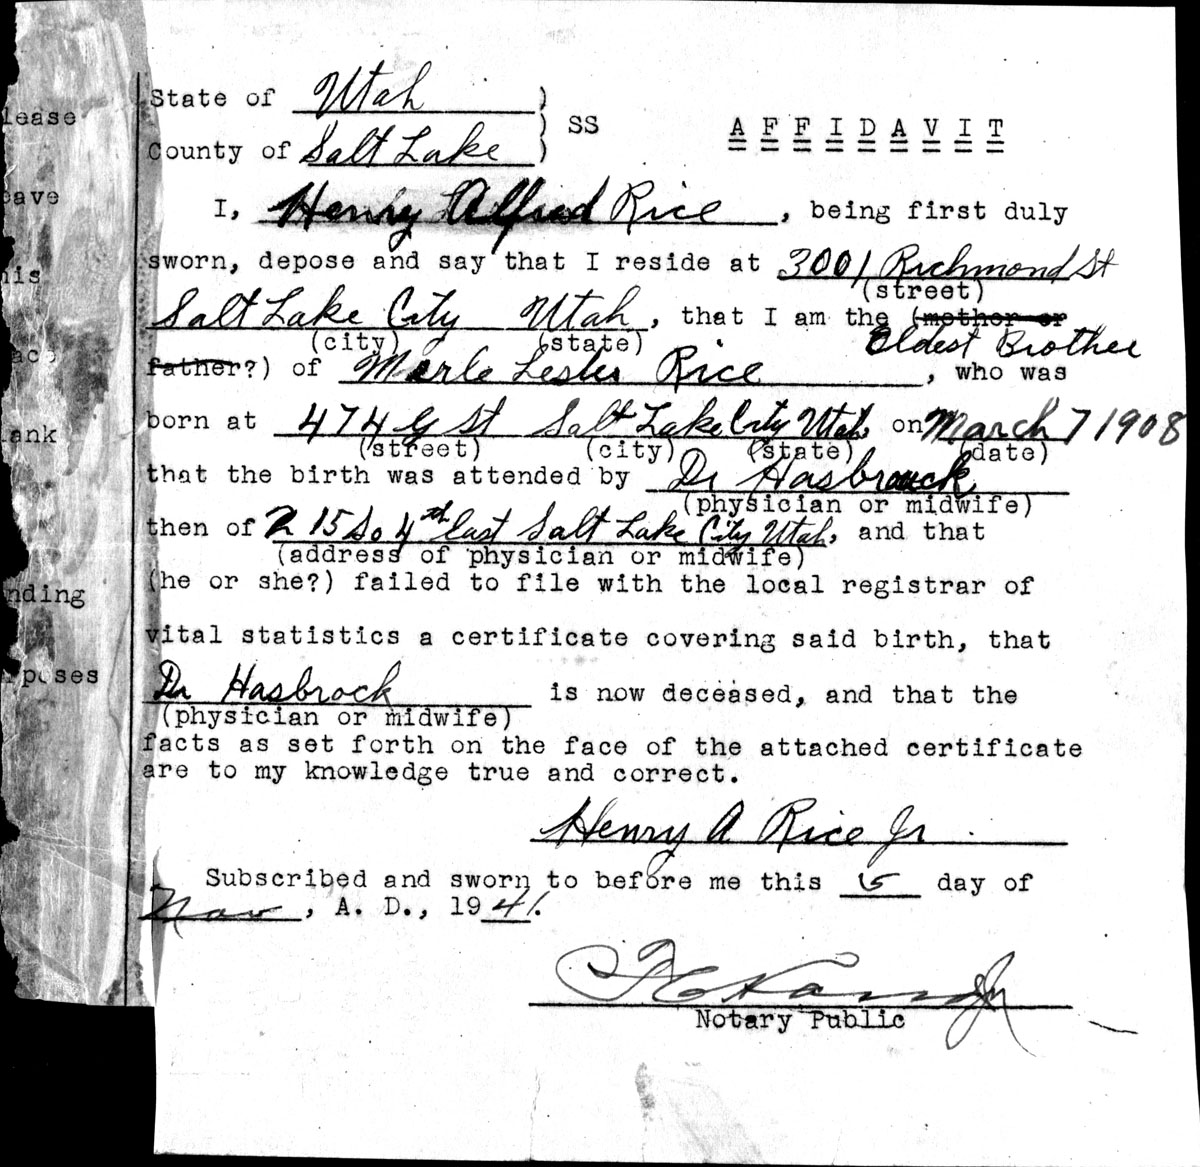 State of Utah )
) SS
A F F I D A V I T
County of Salt Lake )
I, Henry Alfred Rice, being first duly
sworn, depose and say that I reside at 3001 Richmond St
(street)
Salt Lake City Utah, that I am the (mother or
(city) (state) Oldest Brother
father?) of Merle Lester Rice, who was
born at 474 G St Salt Lake City Utah, on March 7 1908
(street) (city) (state) (date)
that the birth was attended by Dr Hasbrouck
(physician or midwife)
then of 215 So 4th East Salt Lake City Utah, and that
(address of physician or midwife)
(he or she?) failed to file with the local registrar of
vital statistics a certificate covering said birth, that
Dr Hasbrock is now deceased, and that the
(physician or midwife)
facts as set forth on the face of the attached certificate
are to my knowledge true and correct.
Henry A Rice Jr
Subscribed and sworn to before me this 5 day of
Nov, A. D., 1941.
Notary Public
lease
eave
his
ace
lank
nding
rposes